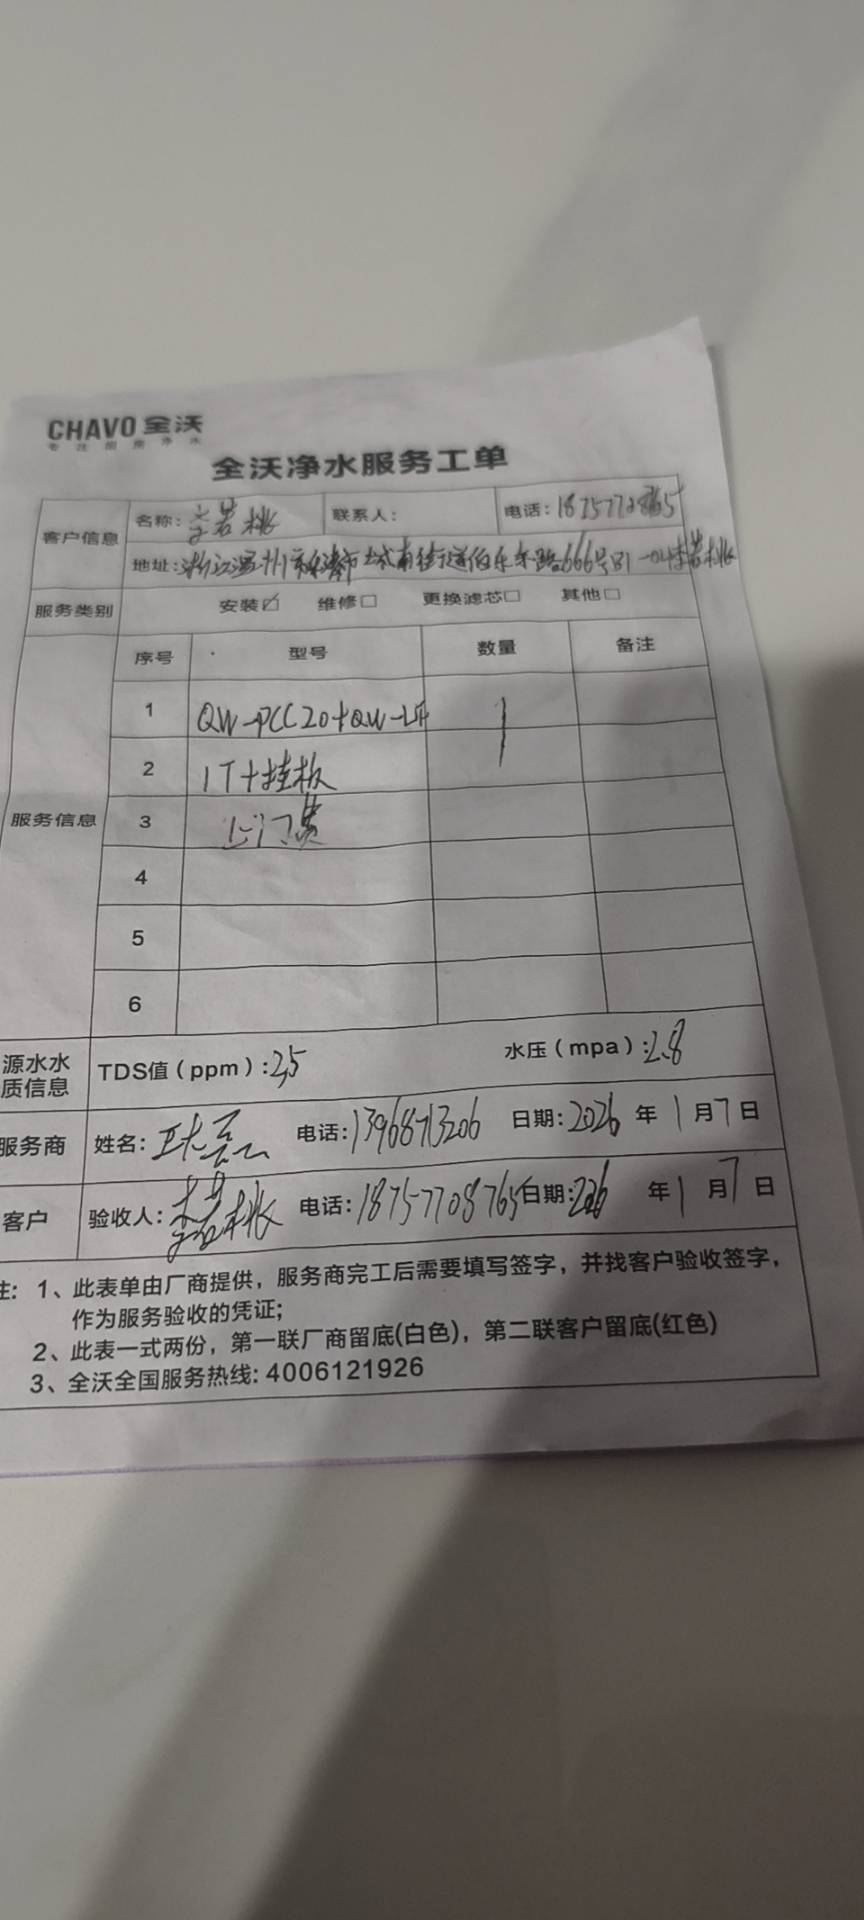 CHAVO 全沃
专注厨房净水
全沃净水服务工单
客户信息 名称: 李若桃 联系人: 电话:
地址: 浙江温州市乐清市城南街道伯乐东路666号
服务类别 安装☑ 维修□ 更换滤芯□ 其他□
服务信息 序号 型号 数量 备注
1 QW-PCC20+QW-LH 1
2 1T+挂板
3 上门费
4
5
6
源水水质信息 TDS值（ppm）: 水压（mpa）: 2.8
服务商 姓名: 电话: 13968713206 日期: 2026 年 1 月 7 日
客户 验收人: 李若桃 电话: 18757708765 日期: 226 年 1 月 7 日
注: 1、此表单由厂商提供，服务商完工后需要填写签字，并找客户验收签字，
作为服务验收的凭证;
2、此表一式两份，第一联厂商留底(白色)，第二联客户留底(红色)
3、全沃全国服务热线: 4006121926